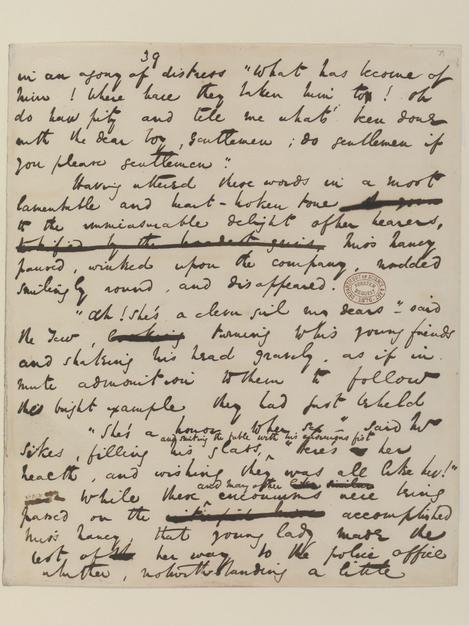 39
in an agony of distress "What has become of
him! Where have they taken him to! Oh
do have pity and tell me what's been done
with the dear boy, Gentlemen; do gentlemen if
you please gentlemen".
Having uttered these words in a most
lamentable and heart-broken tone
to the immeasurable delight of her hearers,
Miss Nancy
paused, winked upon the company, nodded
smilingly round, and disappeared.
"Ah! She's a clever girl my dears" said
the Jew, turning to his young friends
and shaking his head gravely, as if in
mute admonition to them to follow
the bright example they had just beheld
"She's a honor to her sex", said Mr
and smiting the table with his enormous fist
Sikes, filling his glass, "Here's her
health, and wishing they was all like her!"
and many other
While these encomiums were being
passed on the accomplished
Miss Nancy that young lady made the
best of her way to the police office
whither, notwithstanding a little